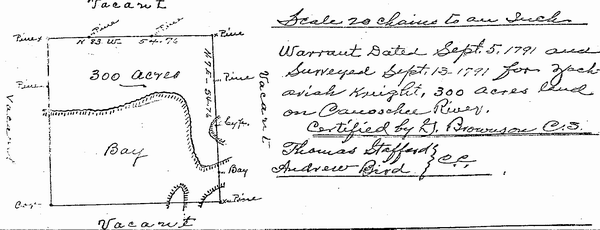 Vacant
Scale 20 chains to an Inch
Pine
Pine
N 83 W - 54.76
Pine
Warrant Dated Sept. 5, 1791 and
Surveyed Sept. 12 1791 for Zach-
ariah Knight, 300 acres land
on Canoochee River.
Certified by D. Brownson C.S.
Thomas Stafford
Andrew Bird
C.C.
300 acres
N 7 E - 54.76
Pine
Pine
Vacant
Vacant
Cyp.
Bay
Bay
Pine
Vacant